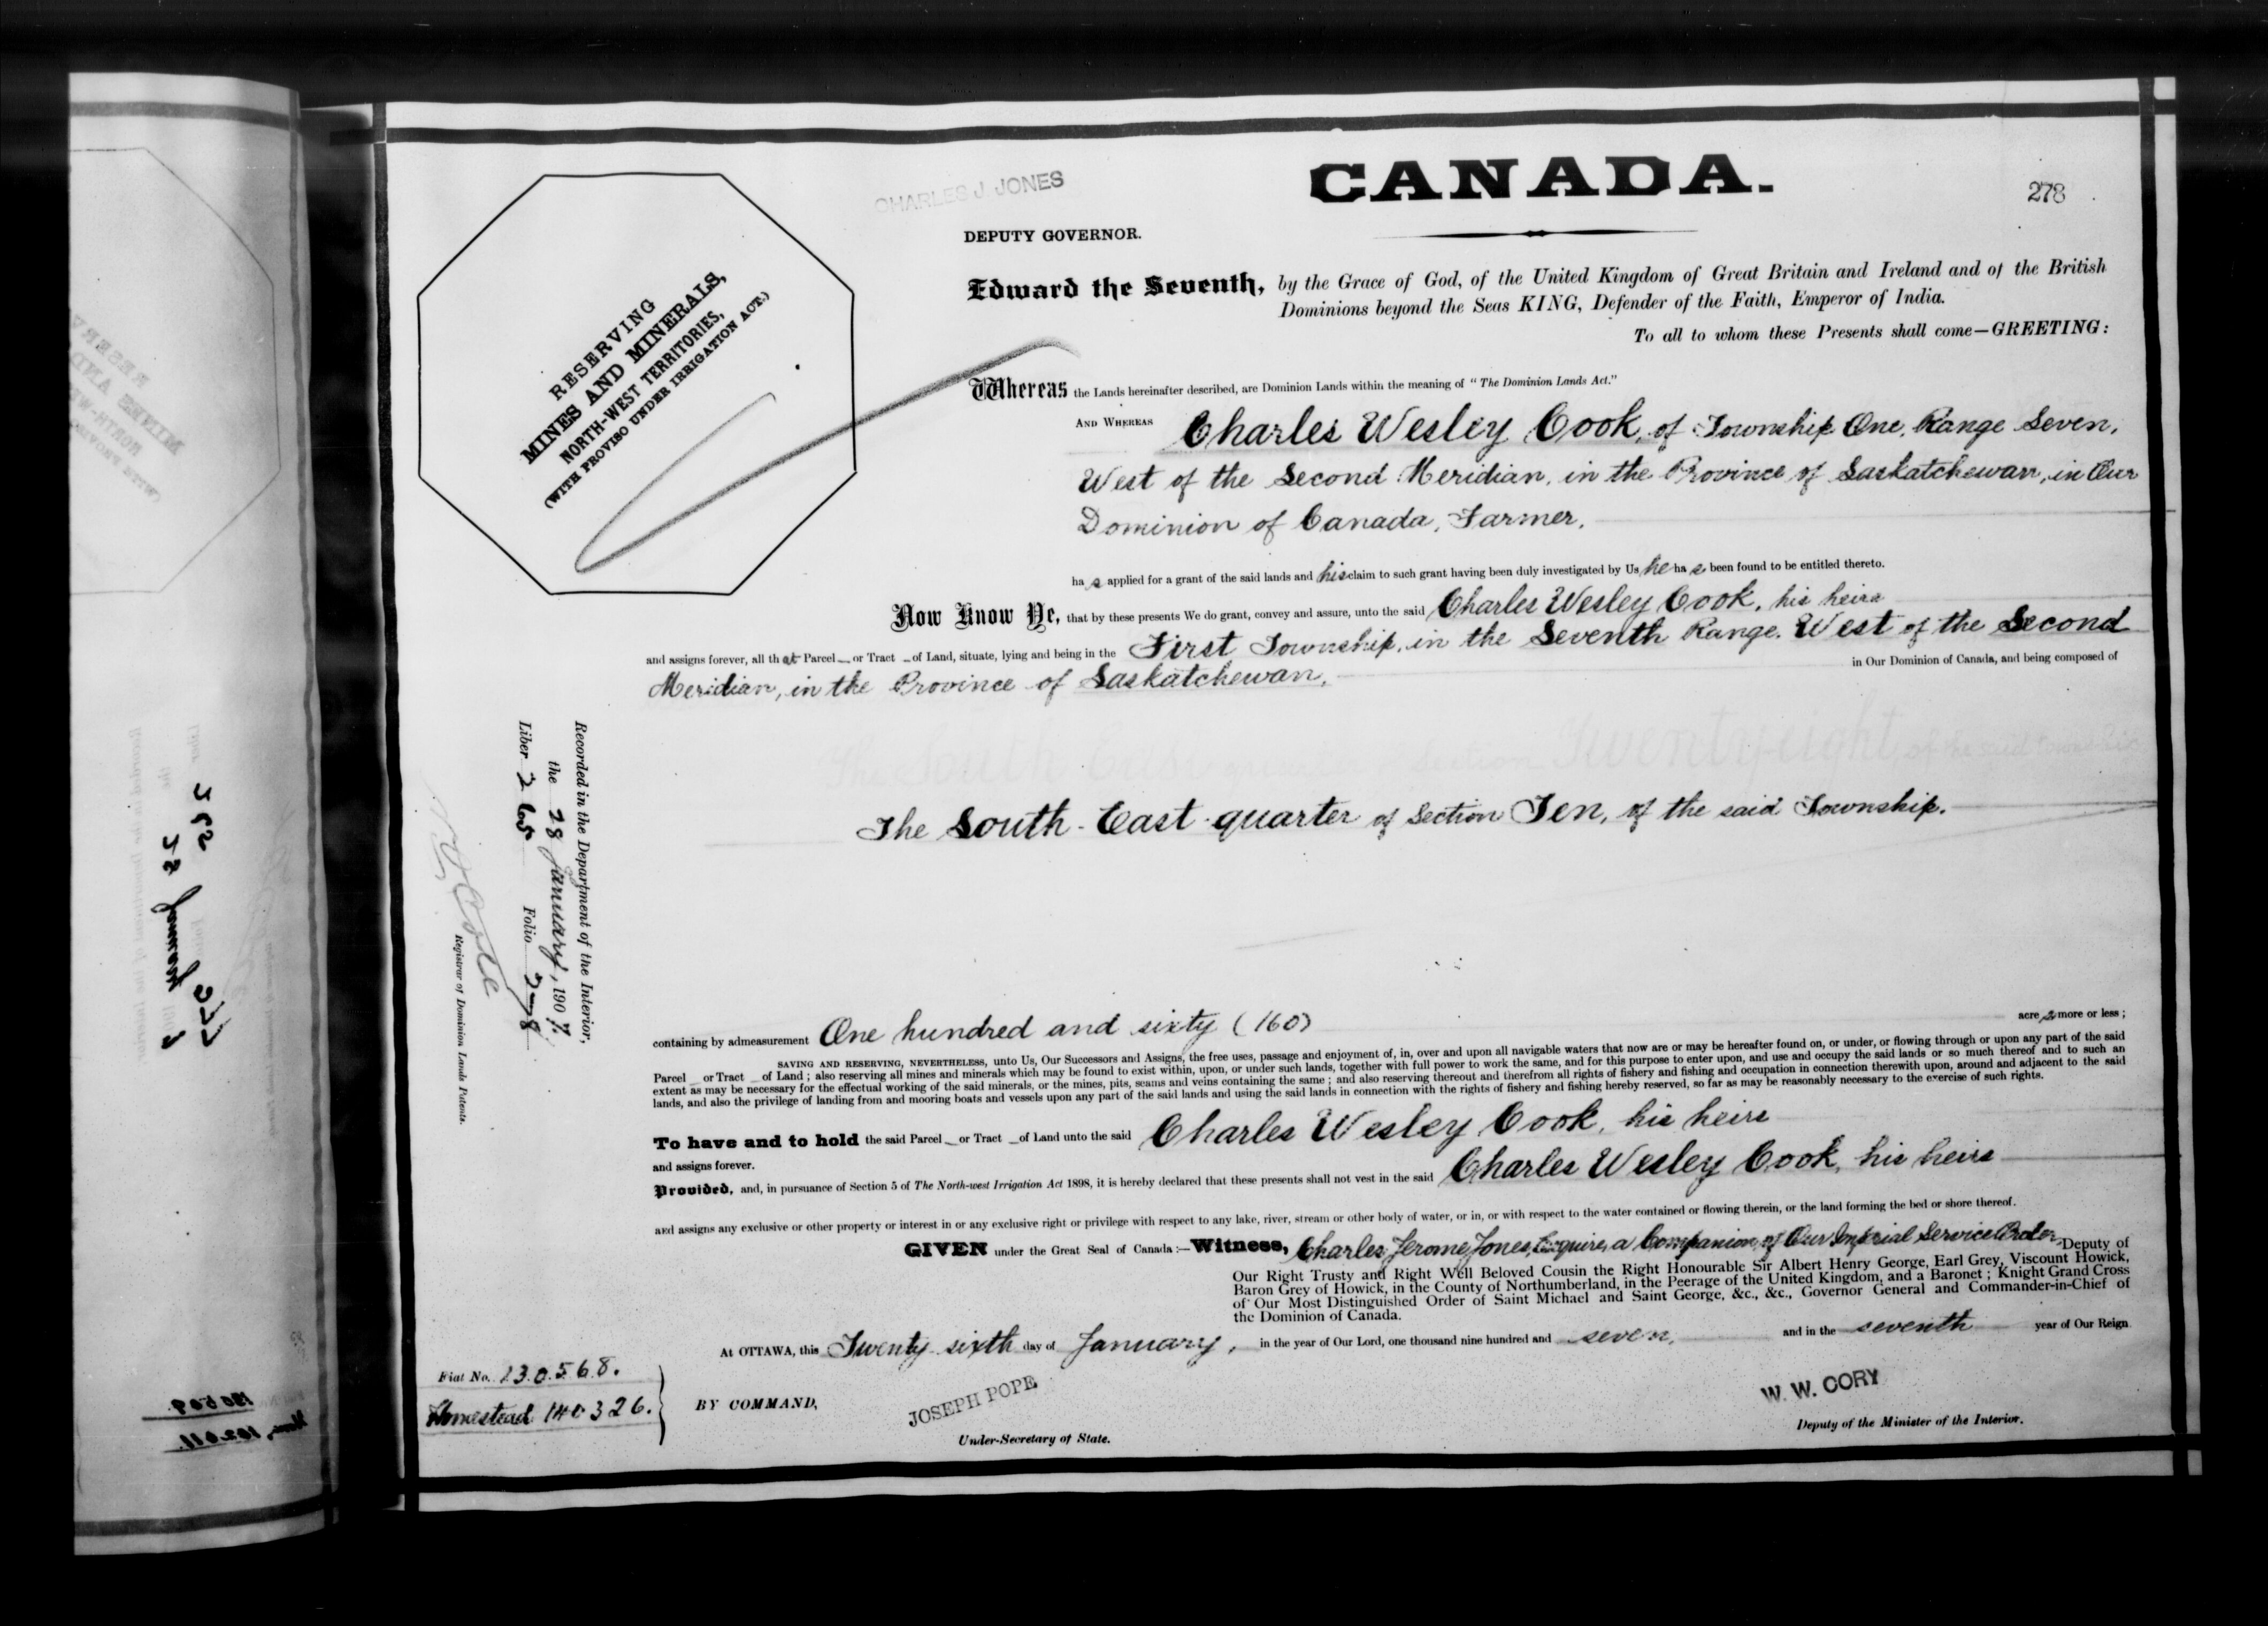 CANADA.
278
CHARLES J. JONES
DEPUTY GOVERNOR.
RESERVING
MINES AND MINERALS,
NORTH-WEST TERRITORIES,
(WITH PROVISO UNDER IRRIGATION ACT.)
Edward the Seventh, by the Grace of God, of the United Kingdom of Great Britain and Ireland and of the British
Dominions beyond the Seas KING, Defender of the Faith, Emperor of India.
To all to whom these Presents shall come—GREETING:
Whereas the Lands hereinafter described, are Dominion Lands within the meaning of "The Dominion Lands Act."
AND WHEREAS Charles Wesley Cook, of Township One, Range Seven,
West of the Second Meridian, in the Province of Saskatchewan, in Our
Dominion of Canada, Farmer,
has applied for a grant of the said lands and his claim to such grant having been duly investigated by Us he has been found to be entitled thereto.
Now Know Ye, that by these presents We do grant, convey and assure, unto the said Charles Wesley Cook, his heirs
and assigns forever, all that Parcel or Tract of Land, situate, lying and being in the First Township, in the Seventh Range, West of the Second
Meridian, in the Province of Saskatchewan, in Our Dominion of Canada, and being composed of
The South-East quarter of Section Ten, of the said Township.
containing by admeasurement One hundred and sixty (160) acres more or less;
SAVING AND RESERVING, NEVERTHELESS, unto Us, Our Successors and Assigns, the free uses, passage and enjoyment of, in, over and upon all navigable waters that now are or may be hereafter found on, or under, or flowing through or upon any part of the said
Parcel or Tract of Land; also reserving all mines and minerals which may be found to exist within, upon, or under such lands, together with full power to work the same, and for this purpose to enter upon, and use and occupy the said lands or so much thereof and to such an
extent as may be necessary for the effectual working of the said minerals, or the mines, pits, seams and veins containing the same; and also reserving thereout and therefrom all rights of fishery and fishing and occupation in connection therewith upon, around and adjacent to the said
lands, and also the privilege of landing from and mooring boats and vessels upon any part of the said lands and using the said lands in connection with the rights of fishery and fishing hereby reserved, so far as may be reasonably necessary to the exercise of such rights.
To have and to hold the said Parcel or Tract of Land unto the said Charles Wesley Cook, his heirs
and assigns forever.
Provided, and, in pursuance of Section 5 of The North-west Irrigation Act 1898, it is hereby declared that these presents shall not vest in the said Charles Wesley Cook, his heirs
and assigns any exclusive or other property or interest in or any exclusive right or privilege with respect to any lake, river, stream or other body of water, or in, or with respect to the water contained or flowing therein, or the land forming the bed or shore thereof.
GIVEN under the Great Seal of Canada:—Witness, Charles Jerome Jones, Esquire, a Companion of Our Imperial Service Order, Deputy of
Our Right Trusty and Right Well Beloved Cousin the Right Honourable Sir Albert Henry George, Earl Grey, Viscount Howick,
Baron Grey of Howick, in the County of Northumberland, in the Peerage of the United Kingdom, and a Baronet; Knight Grand Cross
of Our Most Distinguished Order of Saint Michael and Saint George, &c., &c., Governor General and Commander-in-Chief of
the Dominion of Canada.
At OTTAWA, this Twenty sixth day of January, in the year of Our Lord, one thousand nine hundred and seven, and in the seventh year of Our Reign
Fiat No. 130568.
Homestead 140326.
BY COMMAND,
JOSEPH POPE
Under-Secretary of State.
W. W. CORY
Deputy of the Minister of the Interior.
Recorded in the Department of the Interior,
the 28 January, 1907.
Liber 265 Folio 278
Registrar of Dominion Lands Patents.